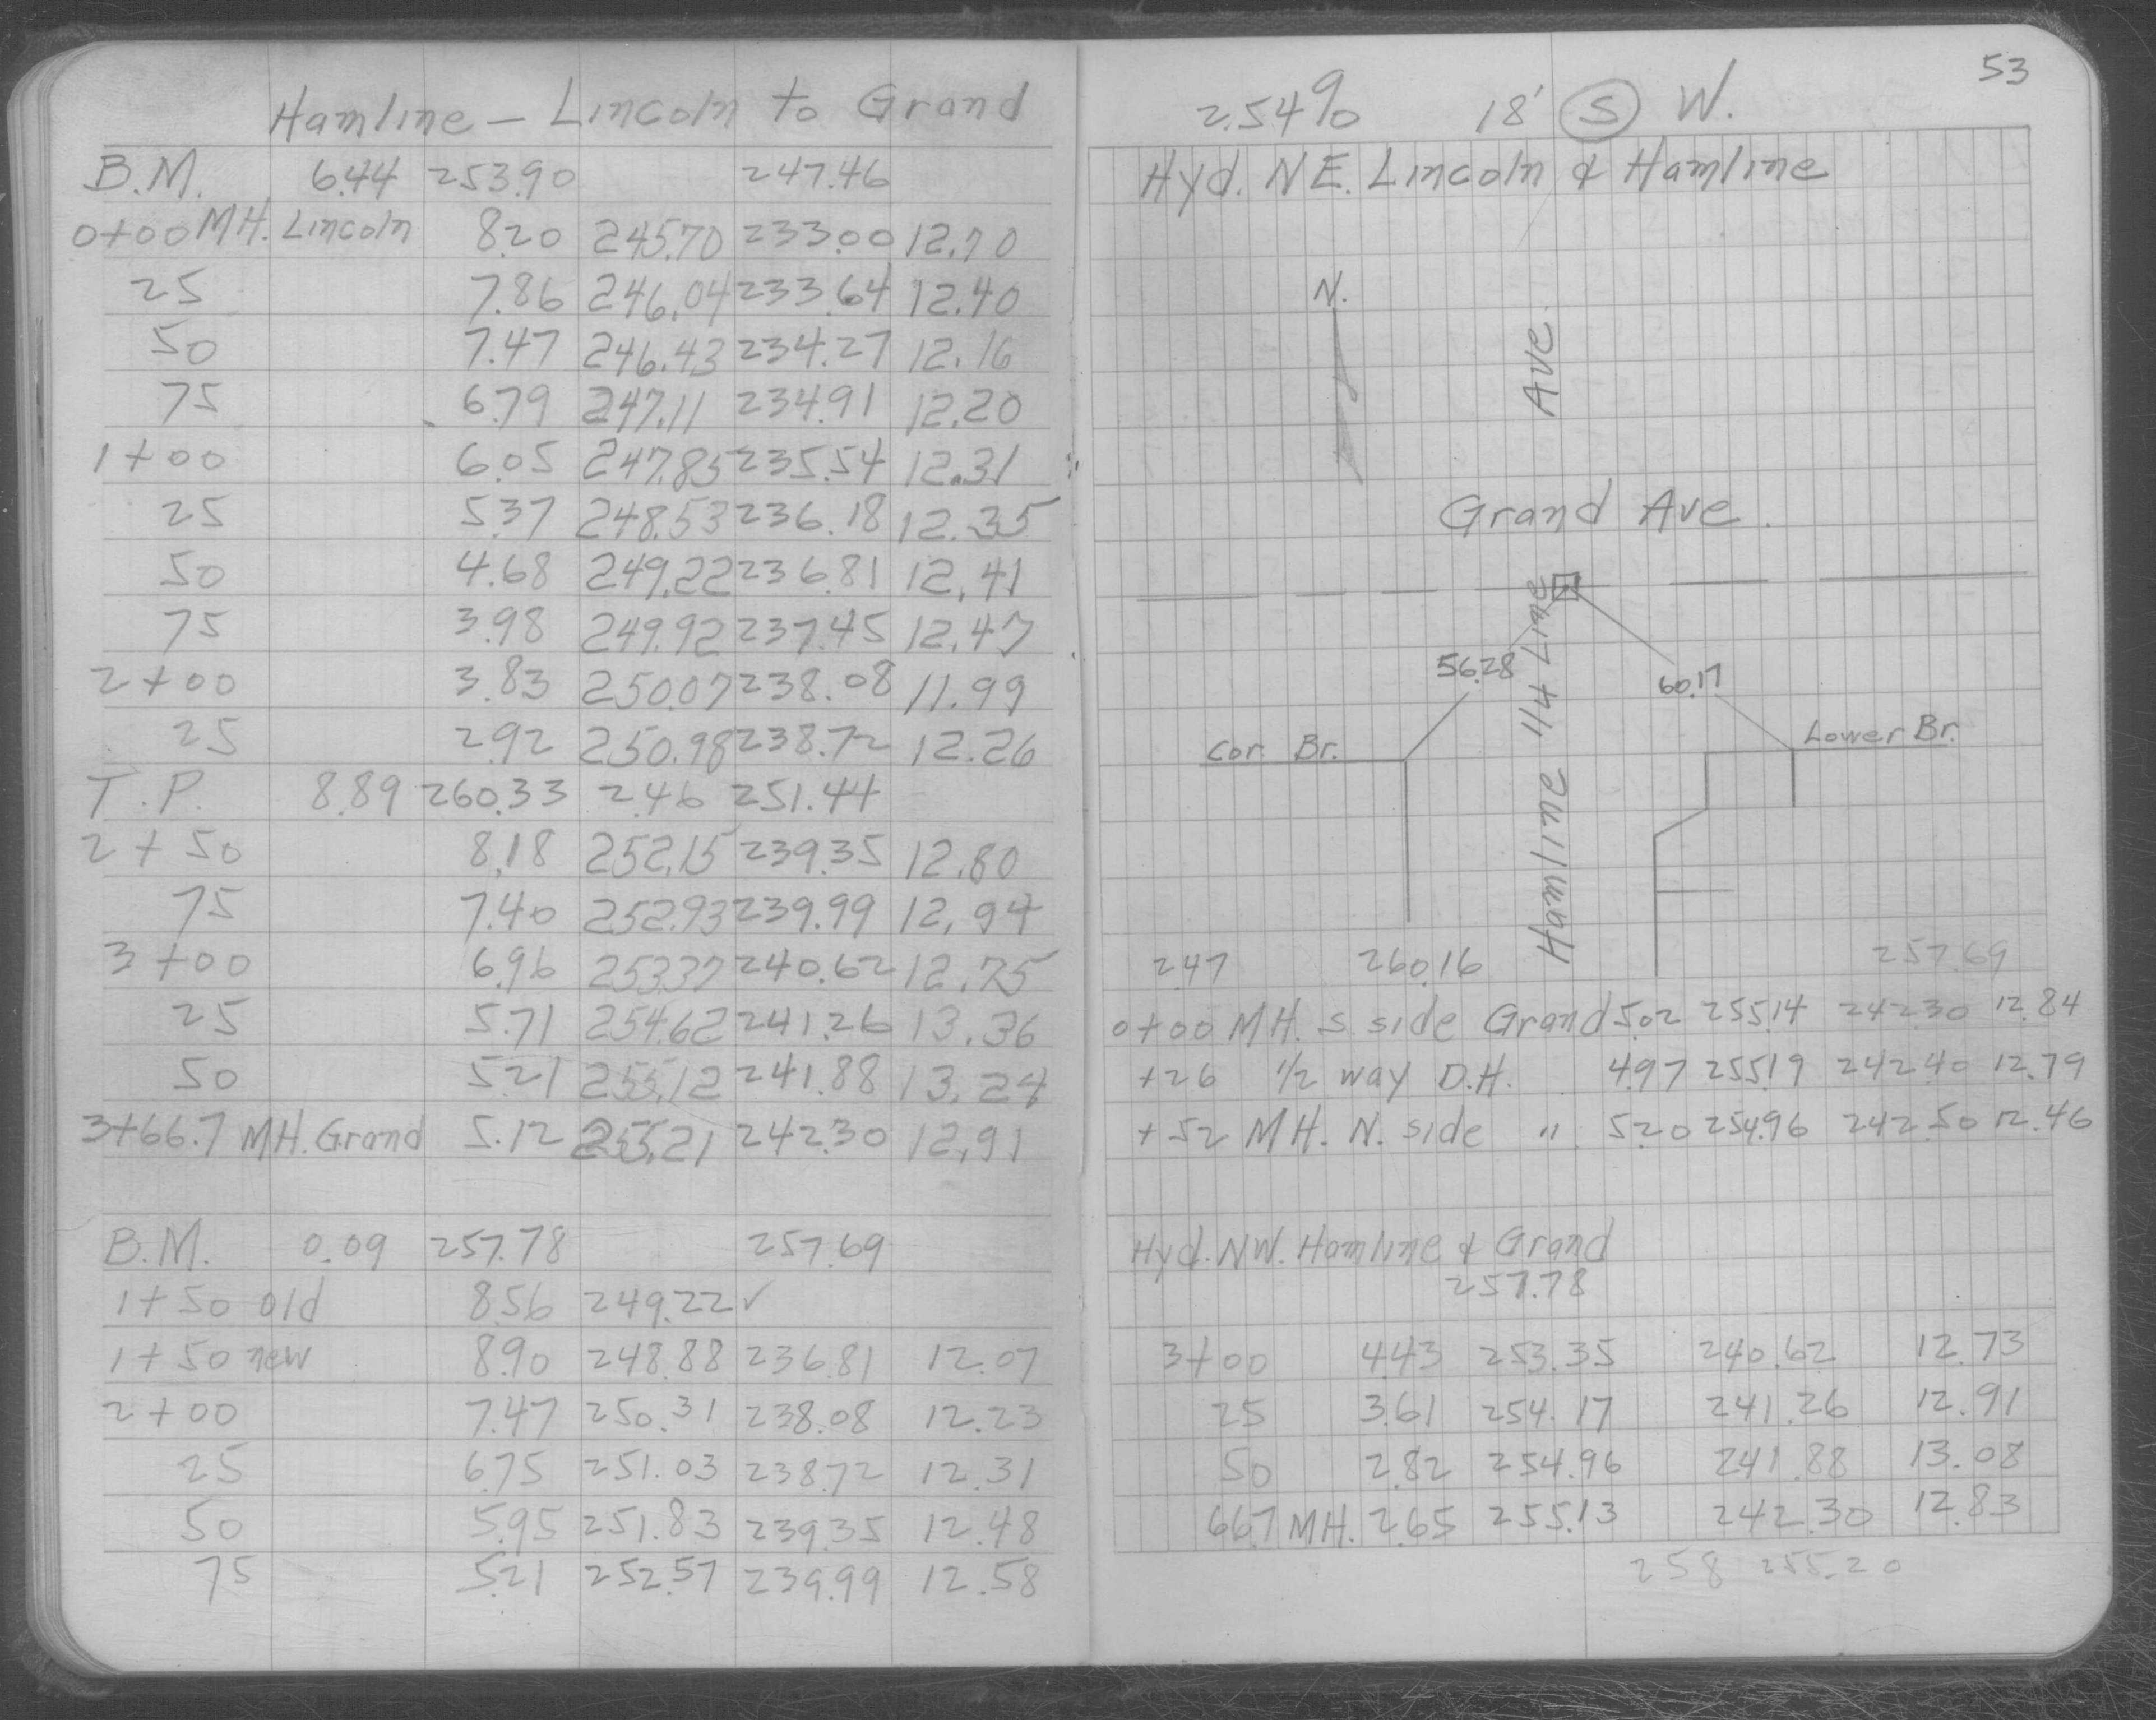 Hamline – Lincoln to Grand
B.M. 6.44 253.90 247.46
0+00 MH. Lincoln 8.20 245.70 233.00 12.70
25 7.86 246.04 233.64 12.40
50 7.47 246.43 234.27 12.16
75 6.79 247.11 234.91 12.20
1+00 6.05 247.85 235.54 12.31
25 5.37 248.53 236.18 12.35
50 4.68 249.22 236.81 12.41
75 3.98 249.92 237.45 12.47
2+00 3.83 250.07 238.08 11.99
25 2.92 250.98 238.72 12.26
T.P. 8.89 260.33 2.46 251.44
2+50 8.18 252.15 239.35 12.80
75 7.40 252.93 239.99 12.94
3+00 6.96 253.37 240.62 12.75
25 5.71 254.62 241.26 13.36
50 5.21 255.12 241.88 13.24
3+66.7 MH. Grand 5.12 255.21 242.30 12.91
B.M. 0.09 257.78 257.69
1+50 old 8.56 249.22 ✓
1+50 new 8.90 248.88 236.81 12.07
2+00 7.47 250.31 238.08 12.23
25 6.75 251.03 238.72 12.31
50 5.95 251.83 239.35 12.48
75 5.21 252.57 239.99 12.58
53
2.54% 18' S W.
Hyd. NE. Lincoln & Hamline
N.
Ave.
Grand Ave.
Hamline 114 Line
56.28 60.17
Cor. Br. Lower Br.
2.47 260.16 257.69
0+00 MH. S. side Grand 5.02 255.14 242.30 12.84
+26 1/2 way D.H. 4.97 255.19 242.40 12.79
+52 MH. N. side " 5.20 254.96 242.50 12.46
Hyd. NW. Hamline & Grand
257.78
3+00 4.43 253.35 240.62 12.73
25 3.61 254.17 241.26 12.91
50 2.82 254.96 241.88 13.08
66.7 MH. 2.65 255.13 242.30 12.83
2.58 255.20